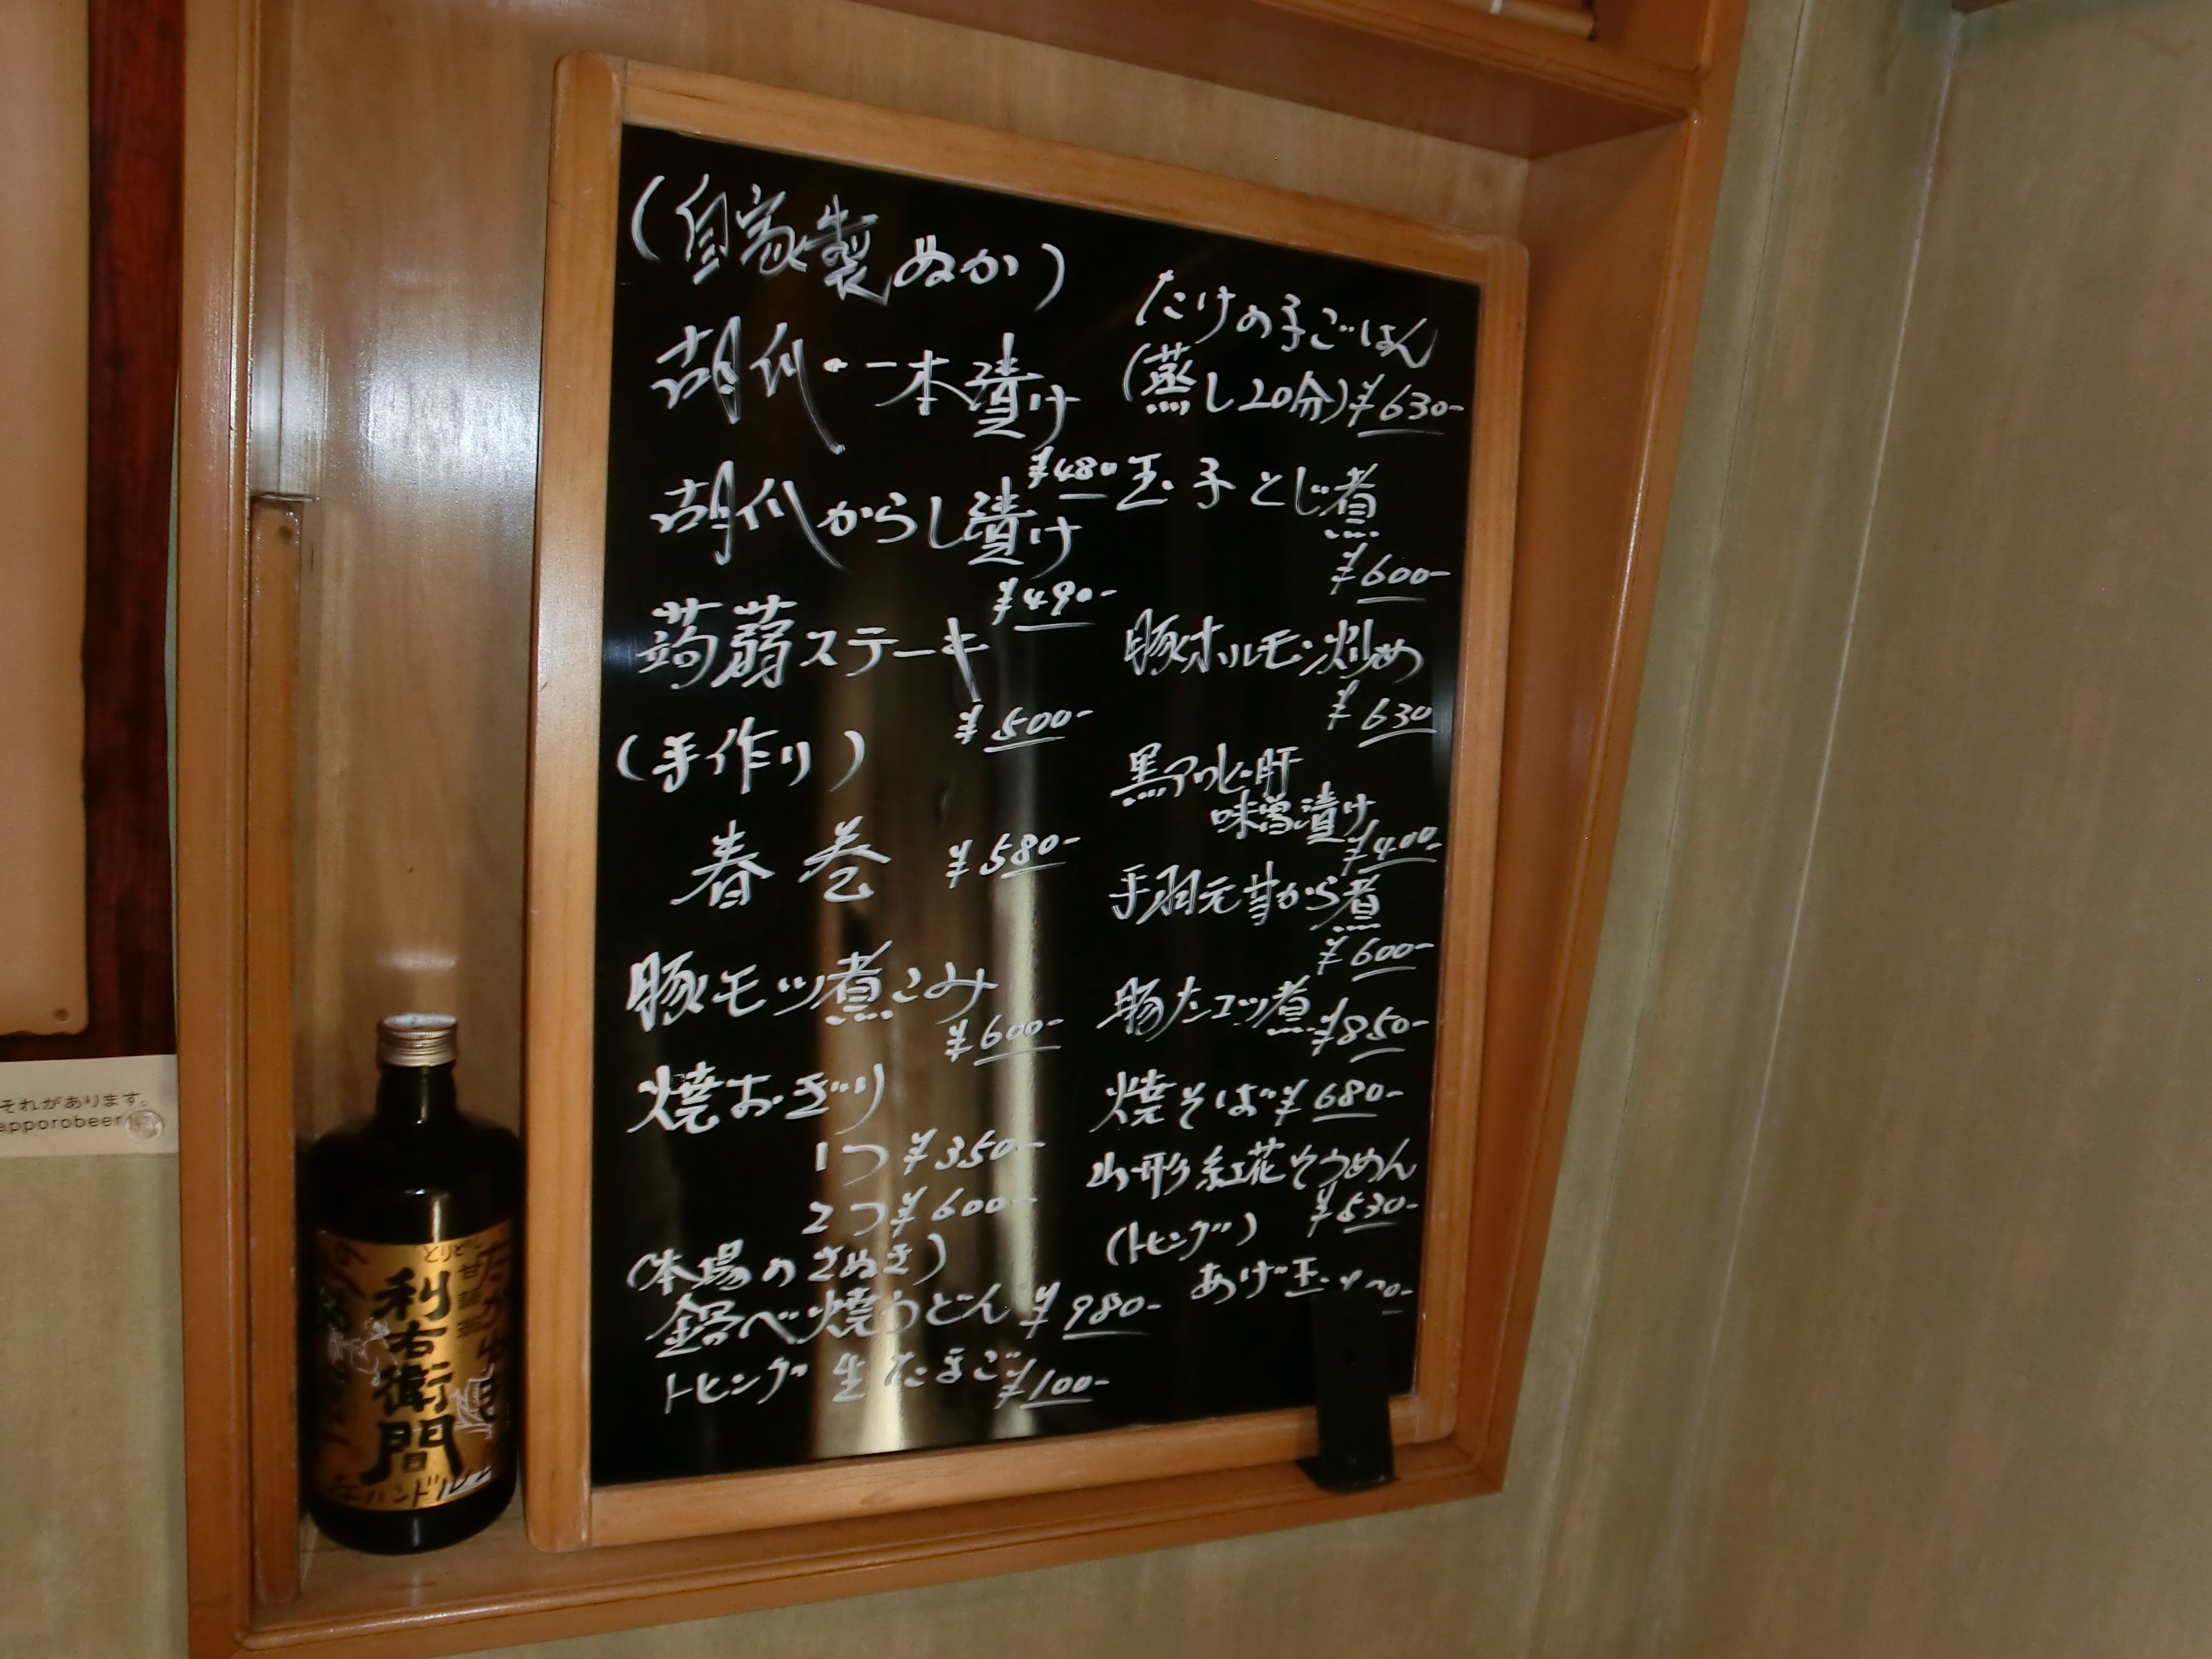 (自家製ぬか)
胡瓜・一本漬け
¥480
胡瓜からし漬け
¥490-
蒟蒻ステーキ
¥500-
(手作り)
春巻 ¥580-
豚モツ煮こみ
¥600-
焼おぎり
1つ¥350-
2つ¥600-
(本場のさぬき)
鍋べ焼うどん ¥980-
トピング 生たまご ¥100-
たけの子ごはん
(蒸し20分)¥630-
玉子とじ煮
¥600-
豚ホルモン炒め
¥630
黒アワビ・肝
味噌漬け
¥400-
手羽元甘から煮
¥600-
豚ナンコツ煮 ¥850-
焼そば ¥680-
山形紅花そうめん
¥530-
(トピング)
あげ玉
それがあります。
apporobeer
利右衛門
ハンドル